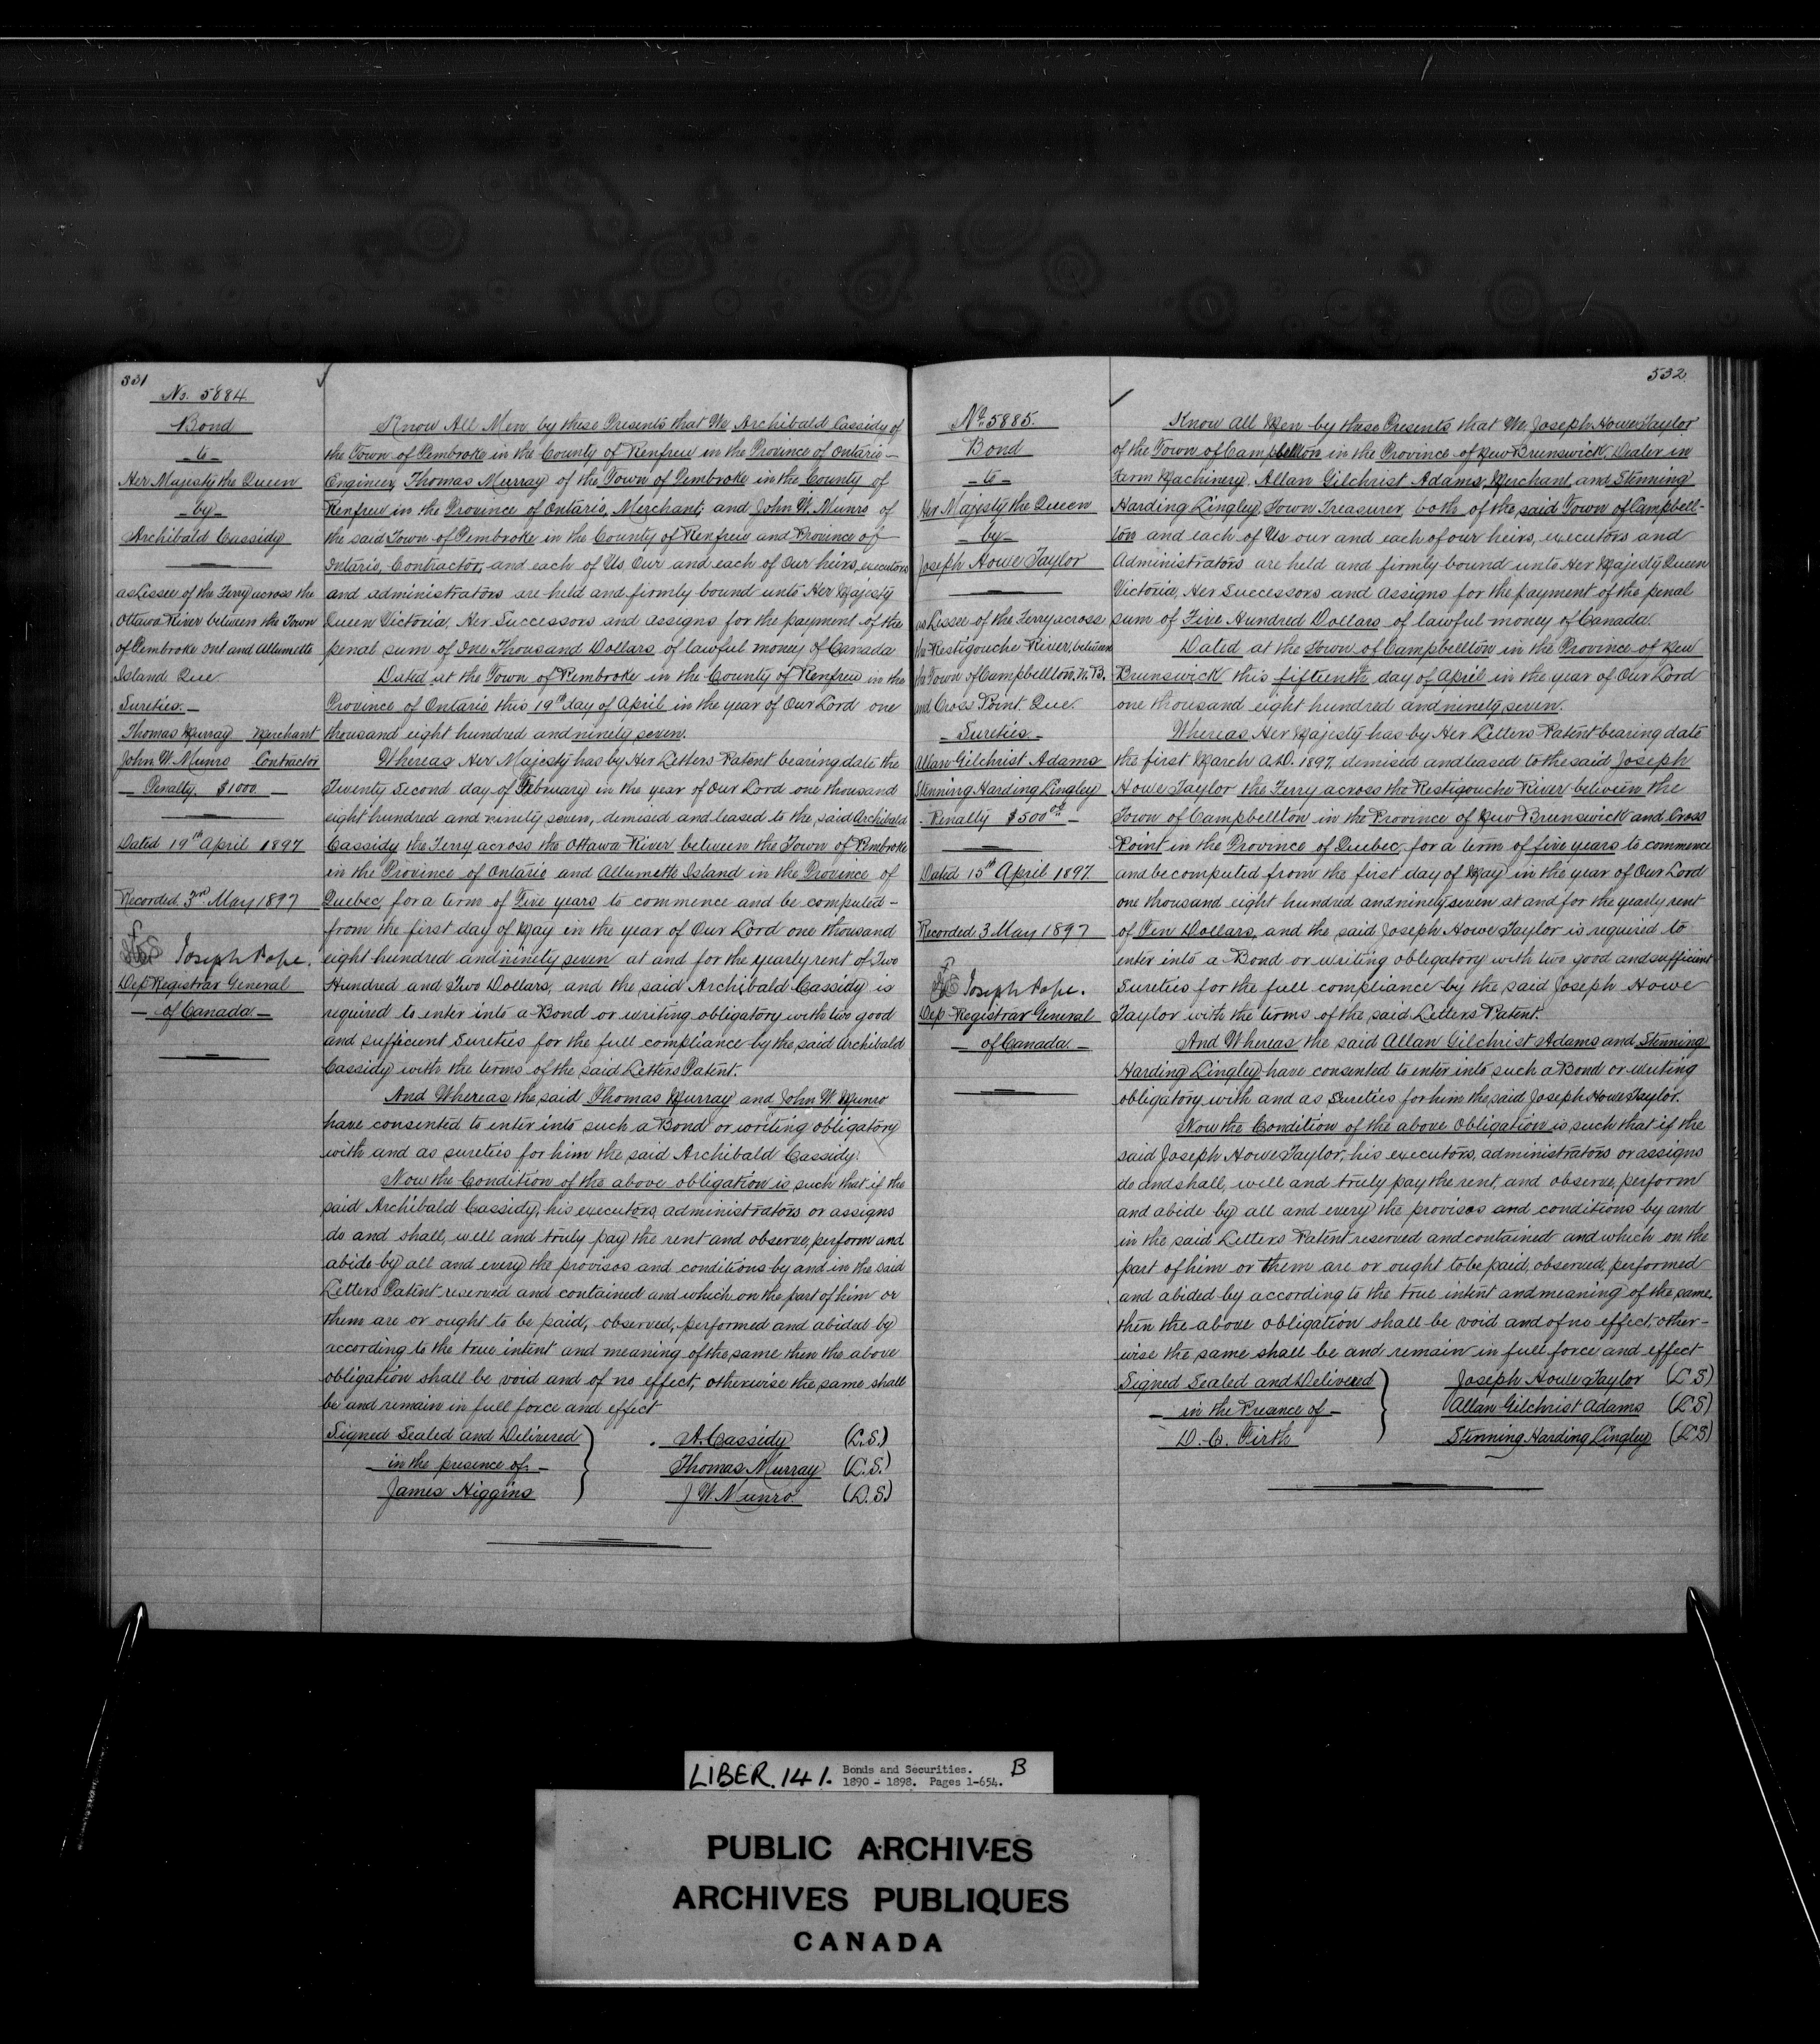 331
No. 5884
Bond
to
Her Majesty the Queen
by
Archibald Cassidy
as Lissee of the Ferry across the
Ottawa River between the Town
of Pembroke Ont and Allumette
Island Que
Sureties:
Thomas Murray Merchant
John W. Munro Contractor
Penalty. $1000
Dated 19th April 1897
Recorded 3rd May 1897
Joseph Pope.
Dep Registrar General
of Canada
Know All Men by these Presents that We Archibald Cassidy of
the Town of Pembroke in the County of Renfrew in the Province of Ontario
Engineer, Thomas Murray of the Town of Pembroke in the County of
Renfrew in the Province of Ontario, Merchant; and John W. Munro of
the said Town of Pembroke in the County of Renfrew and Province of
Ontario, Contractor, and each of Us, Our and each of Our heirs, executors
and administrators are held and firmly bound unto Her Majesty
Queen Victoria, Her Successors and assigns for the payment of the
penal sum of One Thousand Dollars of lawful money of Canada
Dated at the Town of Pembroke in the County of Renfrew in the
Province of Ontario this 19th day of April in the year of Our Lord one
thousand eight hundred and ninety seven.
Whereas Her Majesty has by Her Letters Patent bearing date the
Twenty Second day of February in the year of Our Lord one thousand
eight hundred and ninety seven, demised and leased to the said Archibald
Cassidy the Ferry across the Ottawa River between the Town of Pembroke
in the Province of Ontario and Allumette Island in the Province of
Quebec, for a term of Five years to commence and be computed -
from the first day of May in the year of Our Lord one thousand
eight hundred and ninety seven at and for the yearly rent of Two
Hundred and Two Dollars, and the said Archibald Cassidy is
required to enter into a Bond or writing obligatory with two good
and sufficient Sureties for the full compliance by the said Archibald
Cassidy with the terms of the said Letters Patent.
And Whereas the said Thomas Murray and John W Munro
have consented to enter into such a Bond or writing obligatory
with and as sureties for him the said Archibald Cassidy.
Now the Condition of the above obligation is such that if the
said Archibald Cassidy, his executors, administrators or assigns
do and shall, well and truly pay the rent and observe, perform and
abide by all and every the provisos and conditions by and in the said
Letters Patent reserved and contained and which on the part of him or
them are or ought to be paid, observed, performed and abided by
according to the true intent and meaning of the same then the above
obligation shall be void and of no effect, otherwise the same shall
be and remain in full force and effect
Signed Sealed and Delivered
in the presence of
James Higgins
A. Cassidy (L.S.)
Thomas Murray (L.S.)
J W Munro. (L.S.)
532
No. 5885.
Bond
to
Her Majesty the Queen
by
Joseph Howe Taylor
as Lessee of the Ferry across
the Restigouche River, between
the Town of Campbellton, N.B.
and Cross Point. Que.
Sureties.
Allan Gilchrist Adams
Stinning Harding Lingley
Penalty $500 00
Dated 15th April 1897.
Recorded 3 May 1897
Joseph Pope.
Dep Registrar General
of Canada.
Know all Men by these Presents that We Joseph Howe Taylor
of the Town of Campbellton in the Province of New Brunswick, Dealer in
Farm Machinery, Allan Gilchrist Adams, Merchant, and Stinning
Harding Lingley, Town Treasurer, both of the said Town of Campbell-
ton and each of Us our and each of our heirs, executors and
Administrators are held and firmly bound unto Her Majesty Queen
Victoria, Her Successors and assigns for the payment of the penal
sum of Five Hundred Dollars of lawful money of Canada.
Dated at the Town of Campbellton in the Province of New
Brunswick this fifteenth day of April in the year of Our Lord
one thousand eight hundred and ninety seven.
Whereas Her Majesty has by Her Letters Patent bearing date
the first March A.D. 1897, demised and leased to the said Joseph
Howe Taylor the Ferry across the Restigouche River between the
Town of Campbellton in the Province of New Brunswick and Cross
Point in the Province of Quebec, for a term of five years to commence
and be computed from the first day of May in the year of Our Lord
one thousand eight hundred and ninety seven at and for the yearly rent
of Ten Dollars, and the said Joseph Howe Taylor is required to
enter into a Bond or writing obligatory with two good and sufficient
Sureties for the full compliance by the said Joseph Howe
Taylor with the terms of the said Letters Patent.
And Whereas the said Allan Gilchrist Adams and Stinning
Harding Lingley have consented to enter into such a Bond or writing
obligatory with and as Sureties for him the said Joseph Howe Taylor.
Now the Condition of the above Obligation is such that if the
said Joseph Howe Taylor, his executors, administrators or assigns
do and shall, well and truly pay the rent and observe, perform
and abide by all and every the provisos and conditions by and
in the said Letters Patent reserved and contained and which on the
part of him or them are or ought to be paid, observed, performed
and abided by according to the true intent and meaning of the same,
then the above obligation shall be void and of no effect, other-
wise the same shall be and remain in full force and effect
Signed Sealed and Delivered
in the Presence of
D. C. Firth
Joseph Howe Taylor (L S)
Allan Gilchrist Adams (L S)
Stinning Harding Lingley (L S)
LIBER. 141. Bonds and Securities. B
1890 - 1898. Pages 1-654.
PUBLIC ARCHIVES
ARCHIVES PUBLIQUES
CANADA